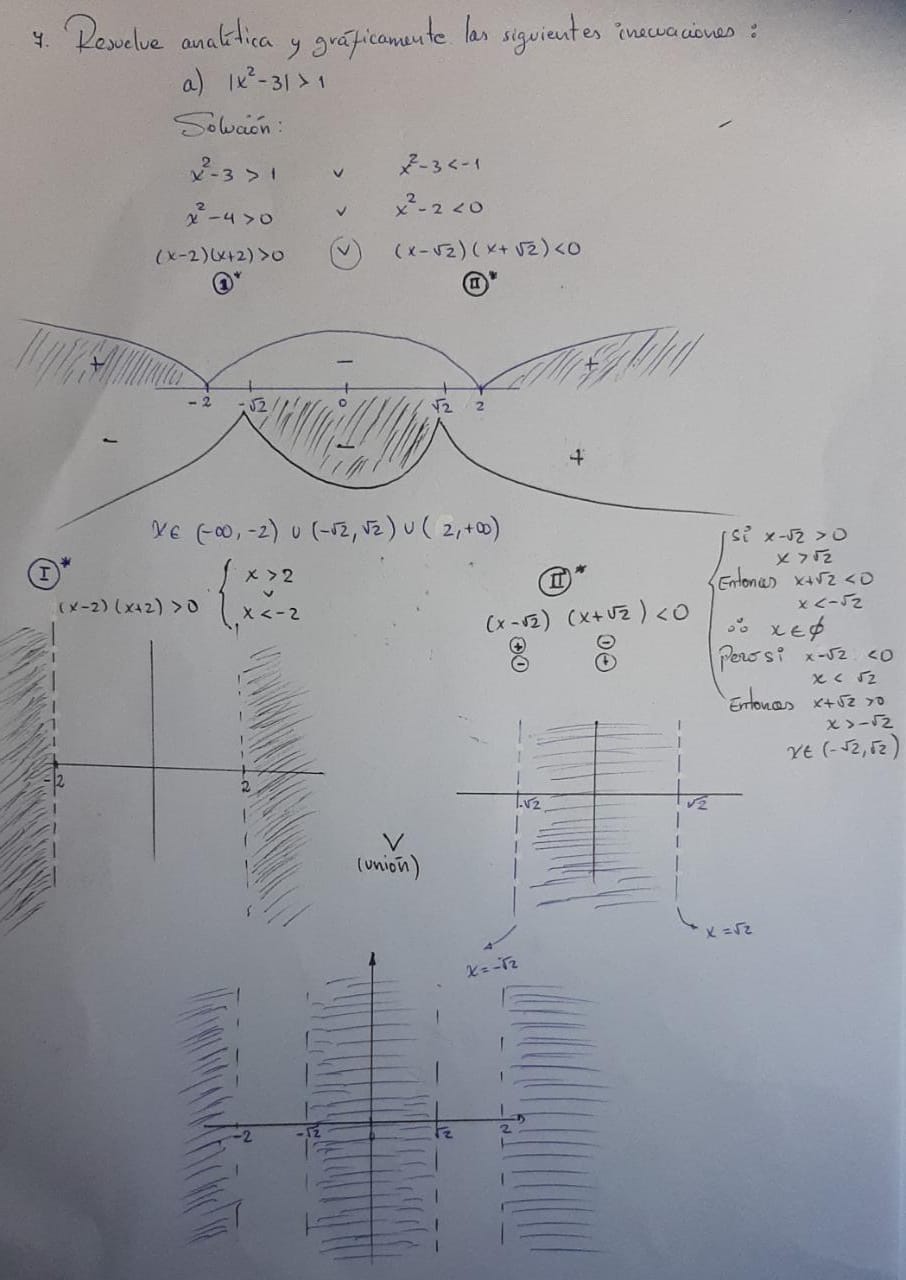 7. Resuelve analítica y gráficamente las siguientes inecuaciones :
a) |x²-3| > 1
Solución:
x²-3 > 1 v x²-3 < -1
x²-4 > 0 v x²-2 < 0
(x-2)(x+2) > 0 v (x-√2)(x+√2) < 0
I* II*
+ - +
-2 -√2 0 √2 2
- - +
x ∈ (-∞, -2) ∪ (-√2, √2) ∪ ( 2, +∞)
I*
(x-2) (x+2) > 0 { x > 2
v
x < -2
II*
(x-√2) (x+√2) < 0
+ -
- +
Si x-√2 > 0
x > √2
Entonces x+√2 < 0
x < -√2
∴ x ∈ ∅
Pero si x-√2 < 0
x < √2
Entonces x+√2 > 0
x > -√2
x ∈ (-√2, √2)
-2 2
V
(unión)
-√2 √2
x = -√2
x = √2
-2 -√2 0 √2 2